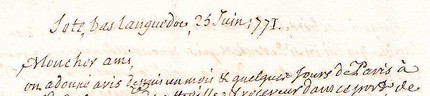 Sete, bas languedoc, 25 Juin 1771.
Mon cher ami,
on a donné avis depuis un mois & quelques jours de Paris à
receveur dans ce port de